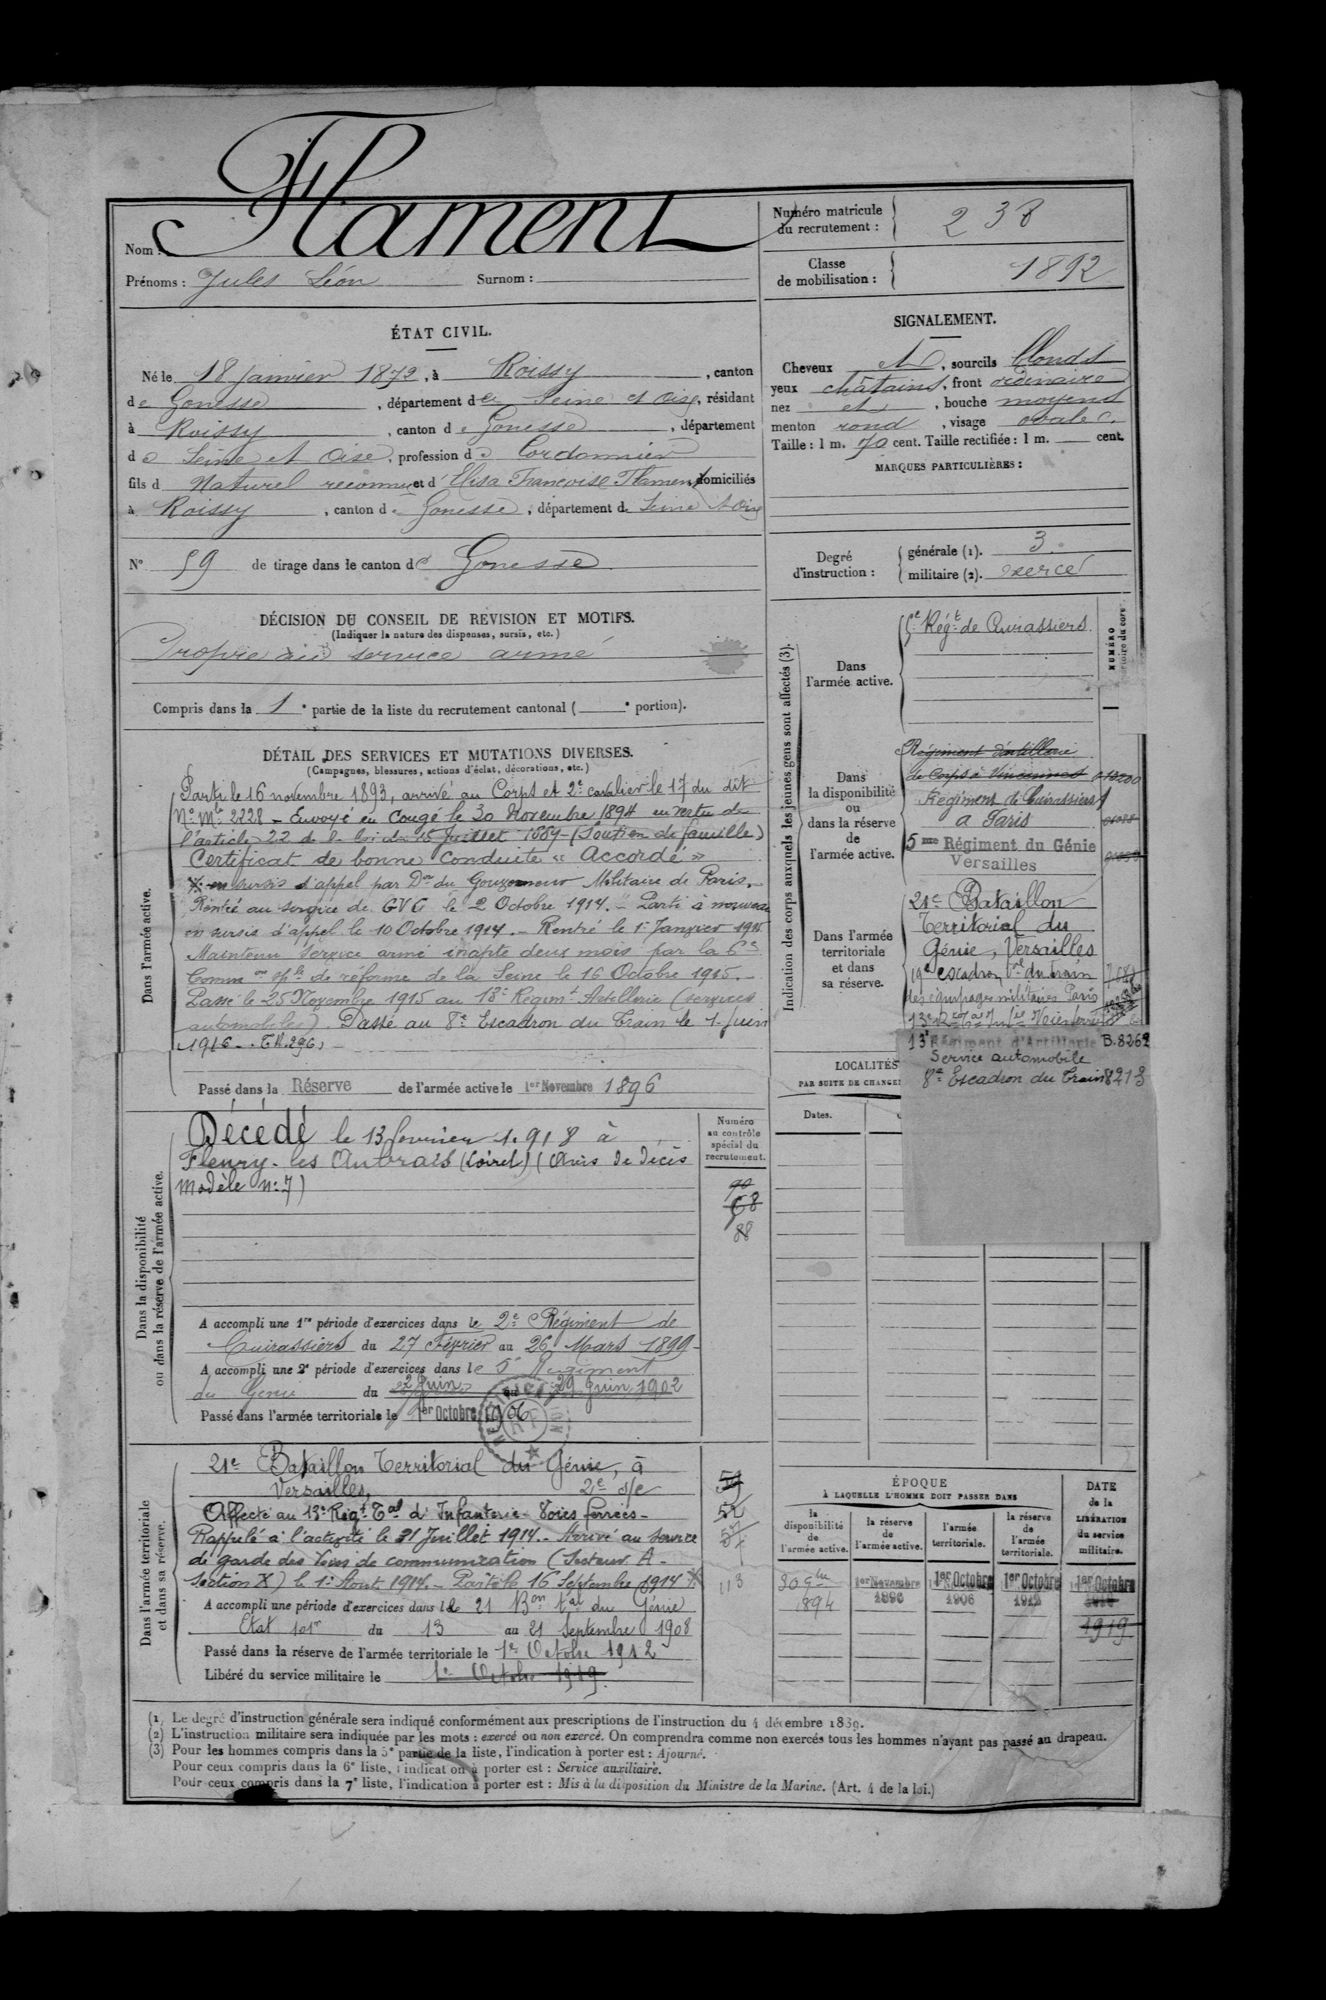 Nom : Flament
Prénoms : Jules Léon Surnom :
Numéro matricule
du recrutement : 238
Classe
de mobilisation : 1892
ÉTAT CIVIL.
Né le 18 janvier 1872, à Roissy, canton
de Gonesse, département de Seine et Oise, résidant
à Roissy, canton de Gonesse, département
de Seine et Oise, profession de Cordonnier
fils d Naturel reconnu et d'Elisa Françoise Flament domiciliés
à Roissy, canton de Gonesse, département de Seine et Oise
N° 59 de tirage dans le canton de Gonesse
DÉCISION DU CONSEIL DE REVISION ET MOTIFS.
(Indiquer la nature des dispenses, sursis, etc.)
Propre au service armé
Compris dans la 1e partie de la liste du recrutement cantonal ( e portion).
SIGNALEMENT.
Cheveux et, sourcils blonds
yeux châtains, front ordinaire
nez et, bouche moyens
menton rond, visage ovale
Taille : 1 m. 70 cent. Taille rectifiée : 1 m. cent.
MARQUES PARTICULIÈRES :
Degré
d'instruction :
générale (1). 3
militaire (2). exercé
Indication des corps auxquels les jeunes gens sont affectés (3).
NUMÉRO
Dans
l'armée active.
Régt de Cuirassiers
Dans
la disponibilité
ou
dans la réserve
de
l'armée active.
Régiment d'artillerie
de Corps à Vincennes
Régiment de Cuirassiers
à Paris
5me Régiment du Génie
Versailles
Dans l'armée
territoriale
et dans
sa réserve.
21e Bataillon
Territorial du
Génie, Versailles
19e escadron du train
des équipages militaires Paris
13e Régiment d'Artillerie B.8262
Service automobile
8e Escadron du Train 8213
DÉTAIL DES SERVICES ET MUTATIONS DIVERSES.
(Campagnes, blessures, actions d'éclat, décorations, etc.)
Dans l'armée active.
Parti le 16 novembre 1893, arrivé au Corps et 2e cavalier le 17 du dit
No Mle 2228 - Envoyé en Congé le 30 Novembre 1894 en vertu de
l'article 22 de la loi du 15 Juillet 1889 - (Soutien de famille)
Certificat de bonne Conduite « Accordé »
* en sursis d'appel par Don du Gouverneur Militaire de Paris.
Rentré au service de GVC le 2 Octobre 1914. - Parti à nouveau
en sursis d'appel le 10 Octobre 1914. - Rentré le 1er Janvier 1915
Maintenu service armé inapte deux mois par la 6e
Common sple de réforme de la Seine le 16 Octobre 1915.
Passé le 25 Novembre 1915 au 13e Régimt Artillerie (services
automobiles). Passé au 8e Escadron du Train le 1er Juin
1916
Passé dans la Réserve de l'armée active le 1er Novembre 1896
Dans la disponibilité
ou dans la réserve de l'armée active.
Décédé le 13 fevrier 1918 à
Fleury-les Aubrais (Loiret) (Avis de décès
modèle n: 7)
Numéro
au contrôle
spécial du
recrutement.
68
88
A accompli une 1re période d'exercices dans le 2e Régiment de
Cuirassiers du 27 Février au 26 Mars 1899
A accompli une 2e période d'exercices dans le 5e Régiment
du Génie du 2 Juin au 29 Juin 1902
Passé dans l'armée territoriale le 1er Octobre 1906
LOCALITÉS
PAR SUITE DE CHANGE
Dates.
Dans l'armée territoriale
et dans sa réserve.
21e Bataillon Territorial du Génie, à
Versailles,
Affecté au 13e Régt Tal d'Infanterie - Voies ferrées -
Rappelé à l'activité le 31 Juillet 1914. - Arrivé au Service
de garde des Voies de communication (Secteur A -
Section X) le 1er Août 1914. - Parti le 16 Septembre 1914 *
A accompli une période d'exercices dans le 21 Bon tal du Génie
du 13 au 21 Septembre 1908
Passé dans la réserve de l'armée territoriale le 1er Octobre 1912
Libéré du service militaire le 1er Octobre 1919.
52
113
ÉPOQUE
À LAQUELLE L'HOMME DOIT PASSER DANS
la
disponibilité
de
l'armée active.
la réserve
de
l'armée active.
l'armée
territoriale.
la réserve
de
l'armée
territoriale.
DATE
de la
LIBÉRATION
du service
militaire.
30 9bre
1894
1er Novembre
1896
1er Octobre
1906
1er Octobre
1912
1er Octobre
1919
(1) Le degré d'instruction générale sera indiqué conformément aux prescriptions de l'instruction du 4 décembre 1889.
(2) L'instruction militaire sera indiquée par les mots : exercé ou non exercé. On comprendra comme non exercés tous les hommes n'ayant pas passé au drapeau.
(3) Pour les hommes compris dans la 5e partie de la liste, l'indication à porter est : Ajourné.
Pour ceux compris dans la 6e liste, l'indication à porter est : Service auxiliaire.
Pour ceux compris dans la 7e liste, l'indication à porter est : Mis à la disposition du Ministre de la Marine. (Art. 4 de la loi.)